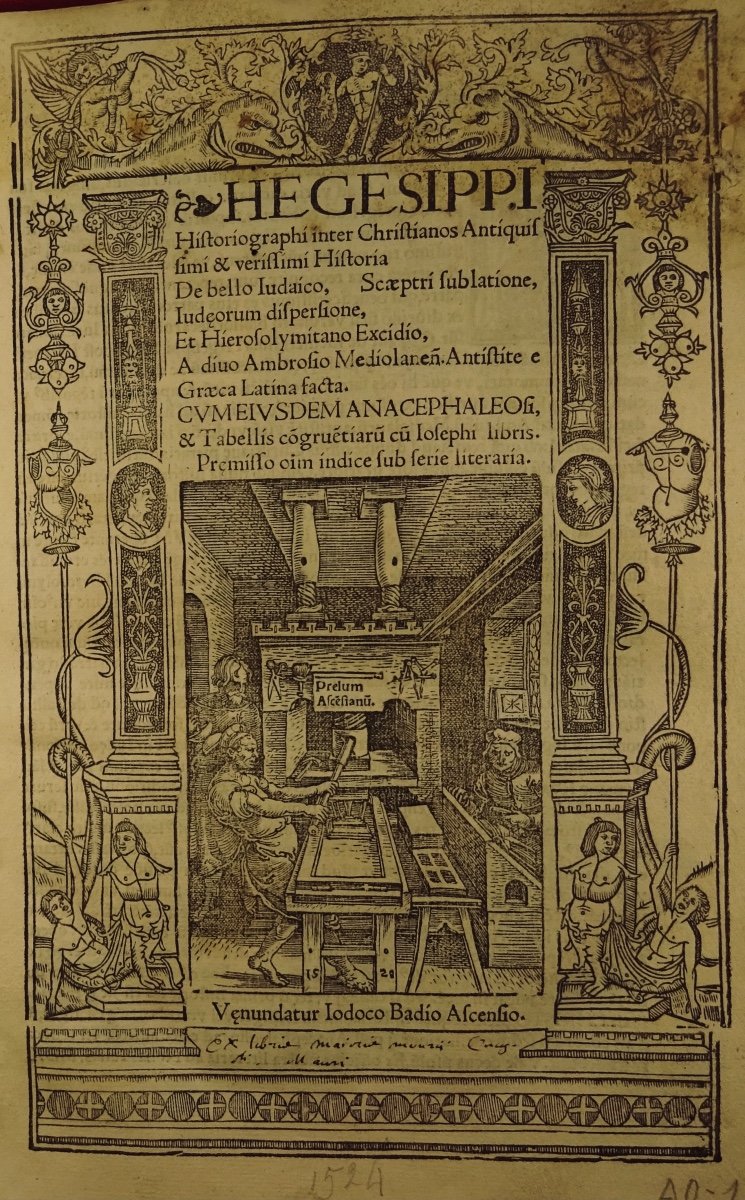 ❧HEGESIPPI
Hiſtoriographi inter Chriſtianos Antiquiſ
ſimi & veriſſimi Hiſtoria
De bello Iudaico, Scæptri ſublatione,
Iudęorum diſperſione,
Et Hieroſolymitano Excidio,
A diuo Ambroſio Mediolaneñ. Antiſtite e
Græca Latina facta.
CVM EIVSDEM ANACEPHALEOſi,
& Tabellis cõgruẽtiarũ cũ Ioſephi libris.
Pręmiſſo eĩm indice ſub ſerie literaria.
Prelum
Aſcẽſianũ.
15 20
Vęnundatur Iodoco Badio Aſcenſio.
Ex libris
Mauri
1524